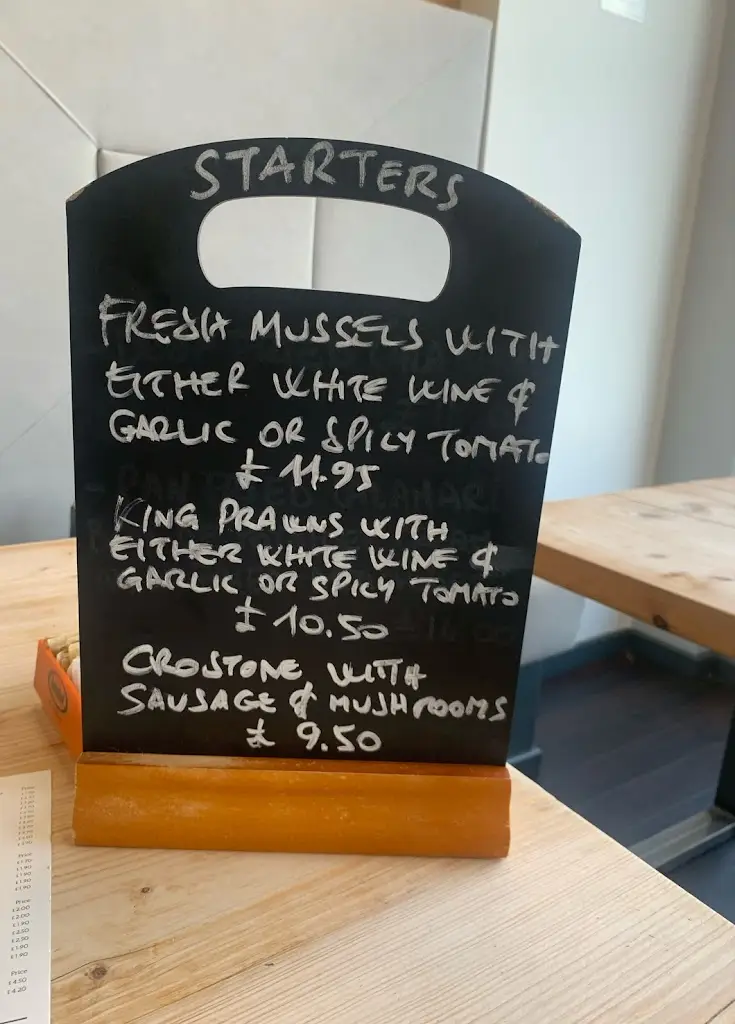 STARTERS
FRESH MUSSELS WITH
EITHER WHITE WINE &
GARLIC OR SPICY TOMATO
£ 11.95
KING PRAWNS WITH
EITHER WHITE WINE &
GARLIC OR SPICY TOMATO
£ 10.50
CROSTONE WITH
SAUSAGE & MUSHROOMS
£ 9.50
Price
Price
£1.90
£1.90
£1.90
Price
£2.00
£2.00
£1.90
£2.50
£2.50
£1.80
£1.90
Price
£4.50
£4.20